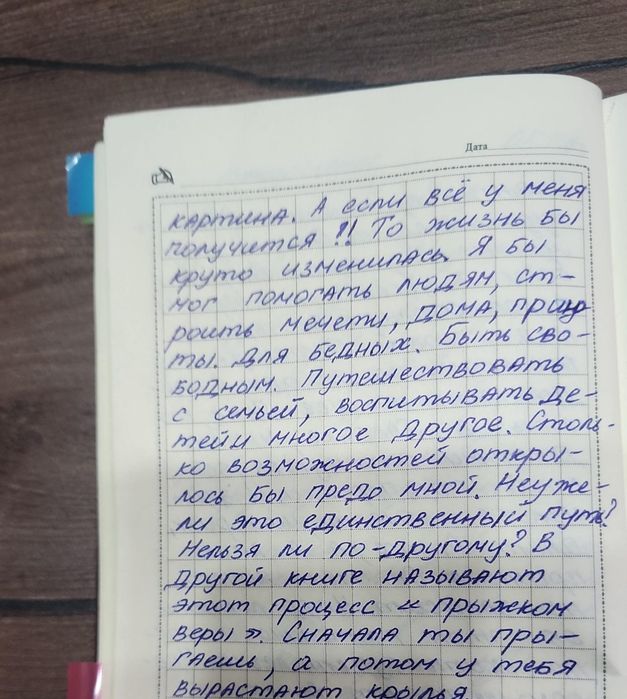 Дата
картина. А если всё у меня
получится!! То жизнь бы
круто изменилась. Я бы
мог помогать людям, ст-
роить мечети, дома, приу-
ты. Для бедных. Быть сво-
бодным. Путешествовать
с семьей, воспитывать де-
тей и многое другое. Столь-
ко возможностей откры-
лось бы предо мной. Неуже-
ли это единственный путь?
Нельзя ли по-другому? В
другой книге называют
этот процесс «прыжком
веры». Сначала ты пры-
гаешь, а потом у тебя
вырастают крылья